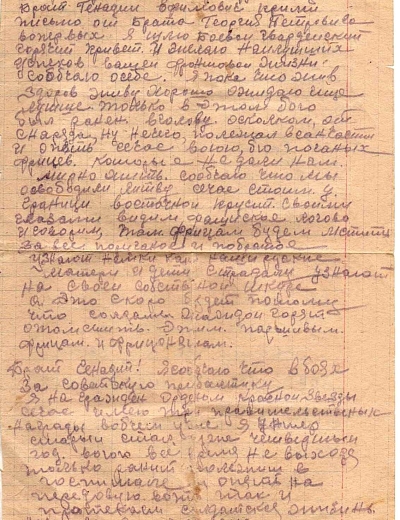 Брат Генадий
письмо от Брата Георгия Петровича
вопервых я шлю Боевой Гвардейский
горячий привет. И желаю наилучших
успехов вашей фронтовой жизни.
Сообчаю о себе. Я пока што жив
здоров живу хорошо ожидаю ище
лутше только в этом
был ранен в голову осколком, от
снаряда, ну нечего, полежал в санчасти
и опять сечас воюю, бю поганых
фрицев. которые не дали нам
мирно жить. Сообчаю что мы
освободили литву сечас стоим у
границы восточной прусии. Своими
глазами видим, фашиское логово
и говорим, там фрицам будем мстить
За все пожарища и побратое
узнают немки как наши руские
матери и дети страдали узнают
на своей собственой шкуре
а это скоро будет потому
что солдаты
отомстить. Этим паршивым.
фрицам. и фрицоняткам.
Брат Генадий! Я сообчаю что в боях
За советскую прибалтику
я награжден Орденом красной звезды
сечас имею три правительственых
награды вобчем уже я
старый стал, уже четвертый
год. воюю все время не выходя
только ранит полежиш в
госпитале и опять на
передовую. вот так и
протекает солдатская жизнь